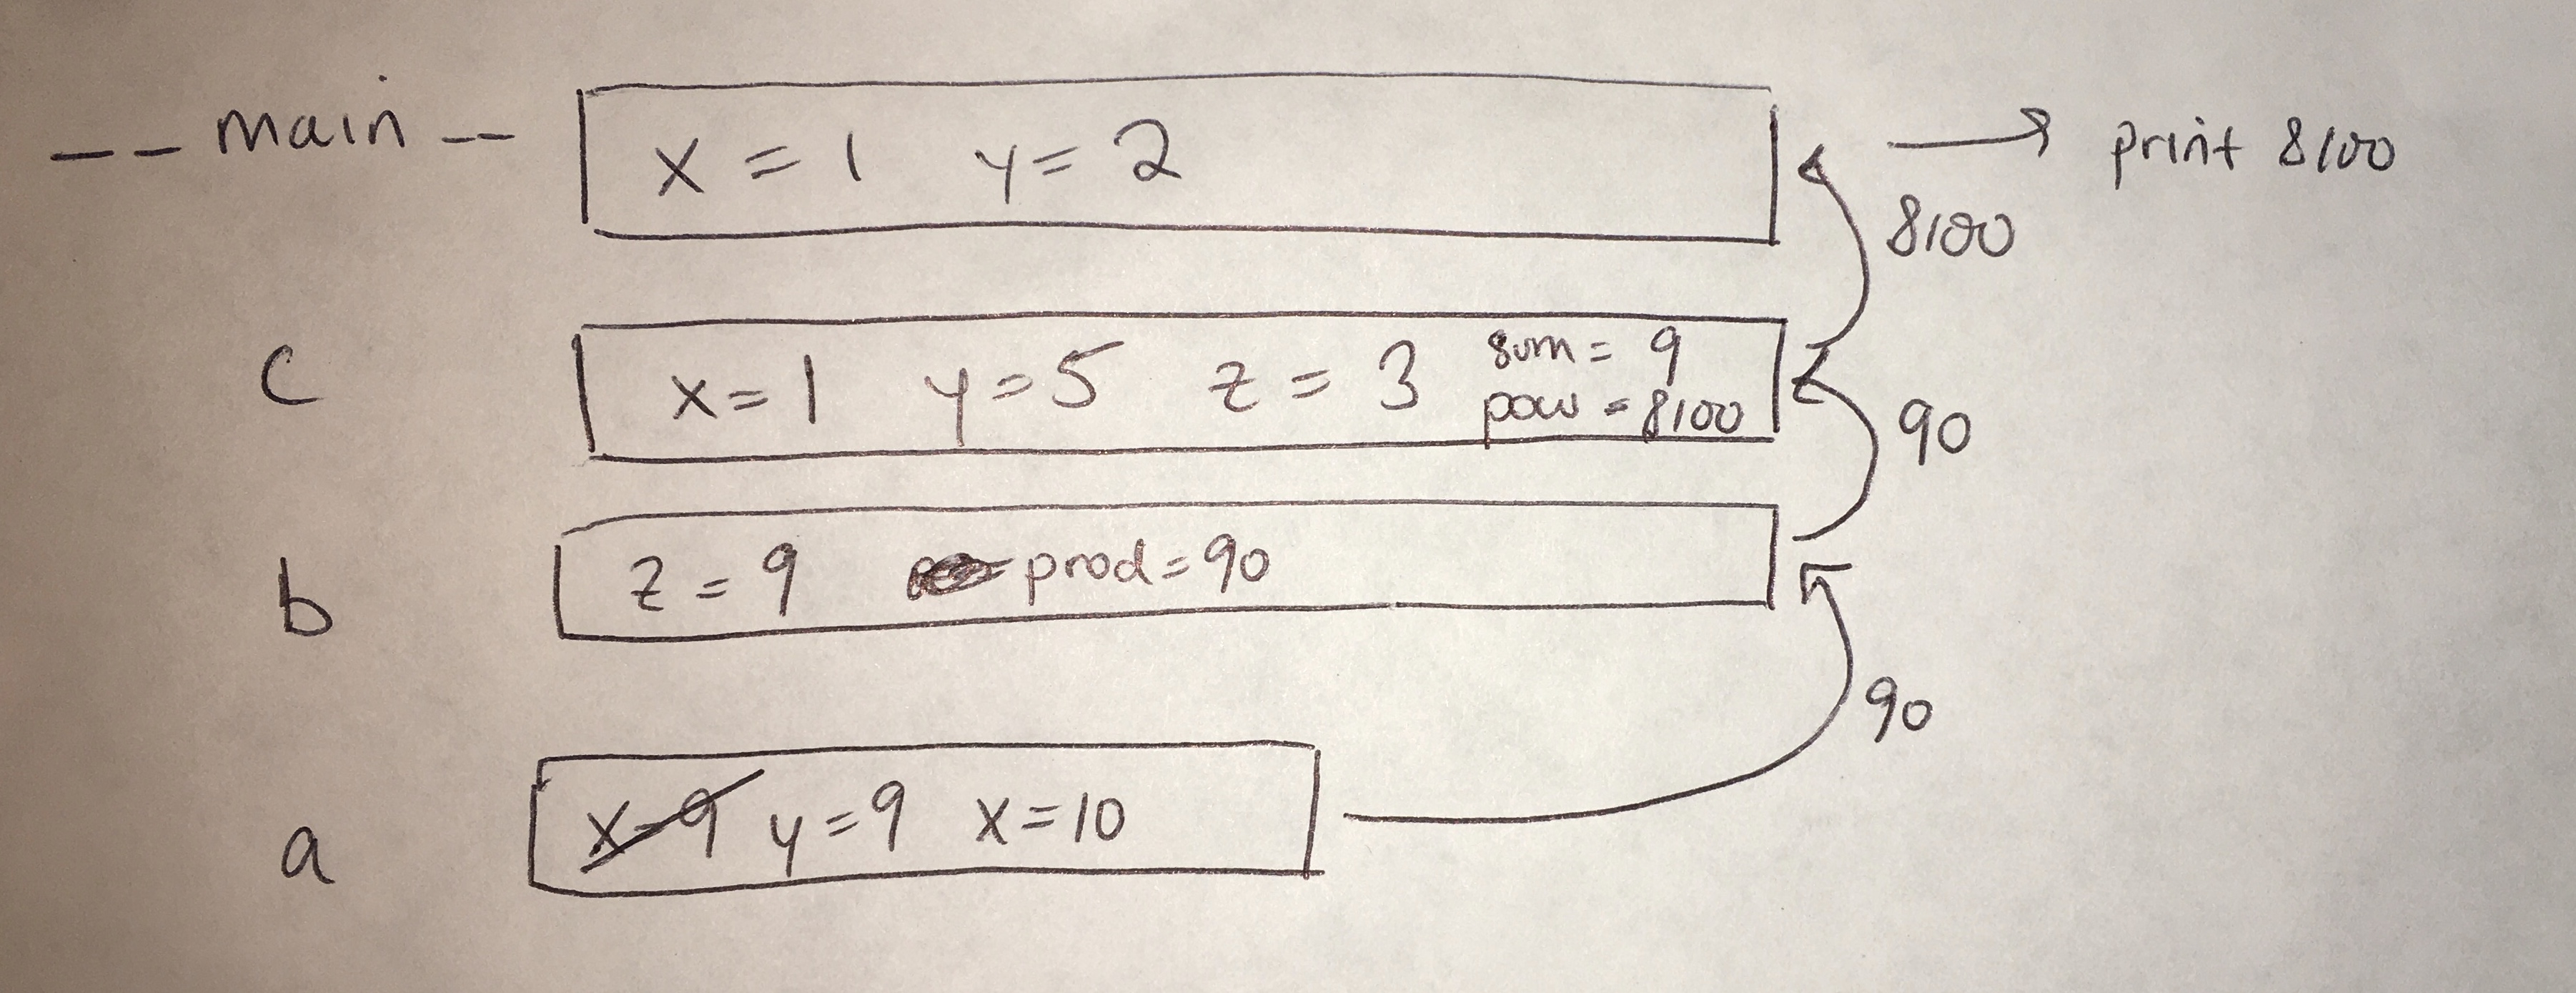 __ main __ x = 1 y = 2 → print 8100
8100
c x = 1 y = 5 z = 3 sum = 9
pow = 8100
90
b z = 9 prod = 90
90
a x = 9 y = 9 x = 10